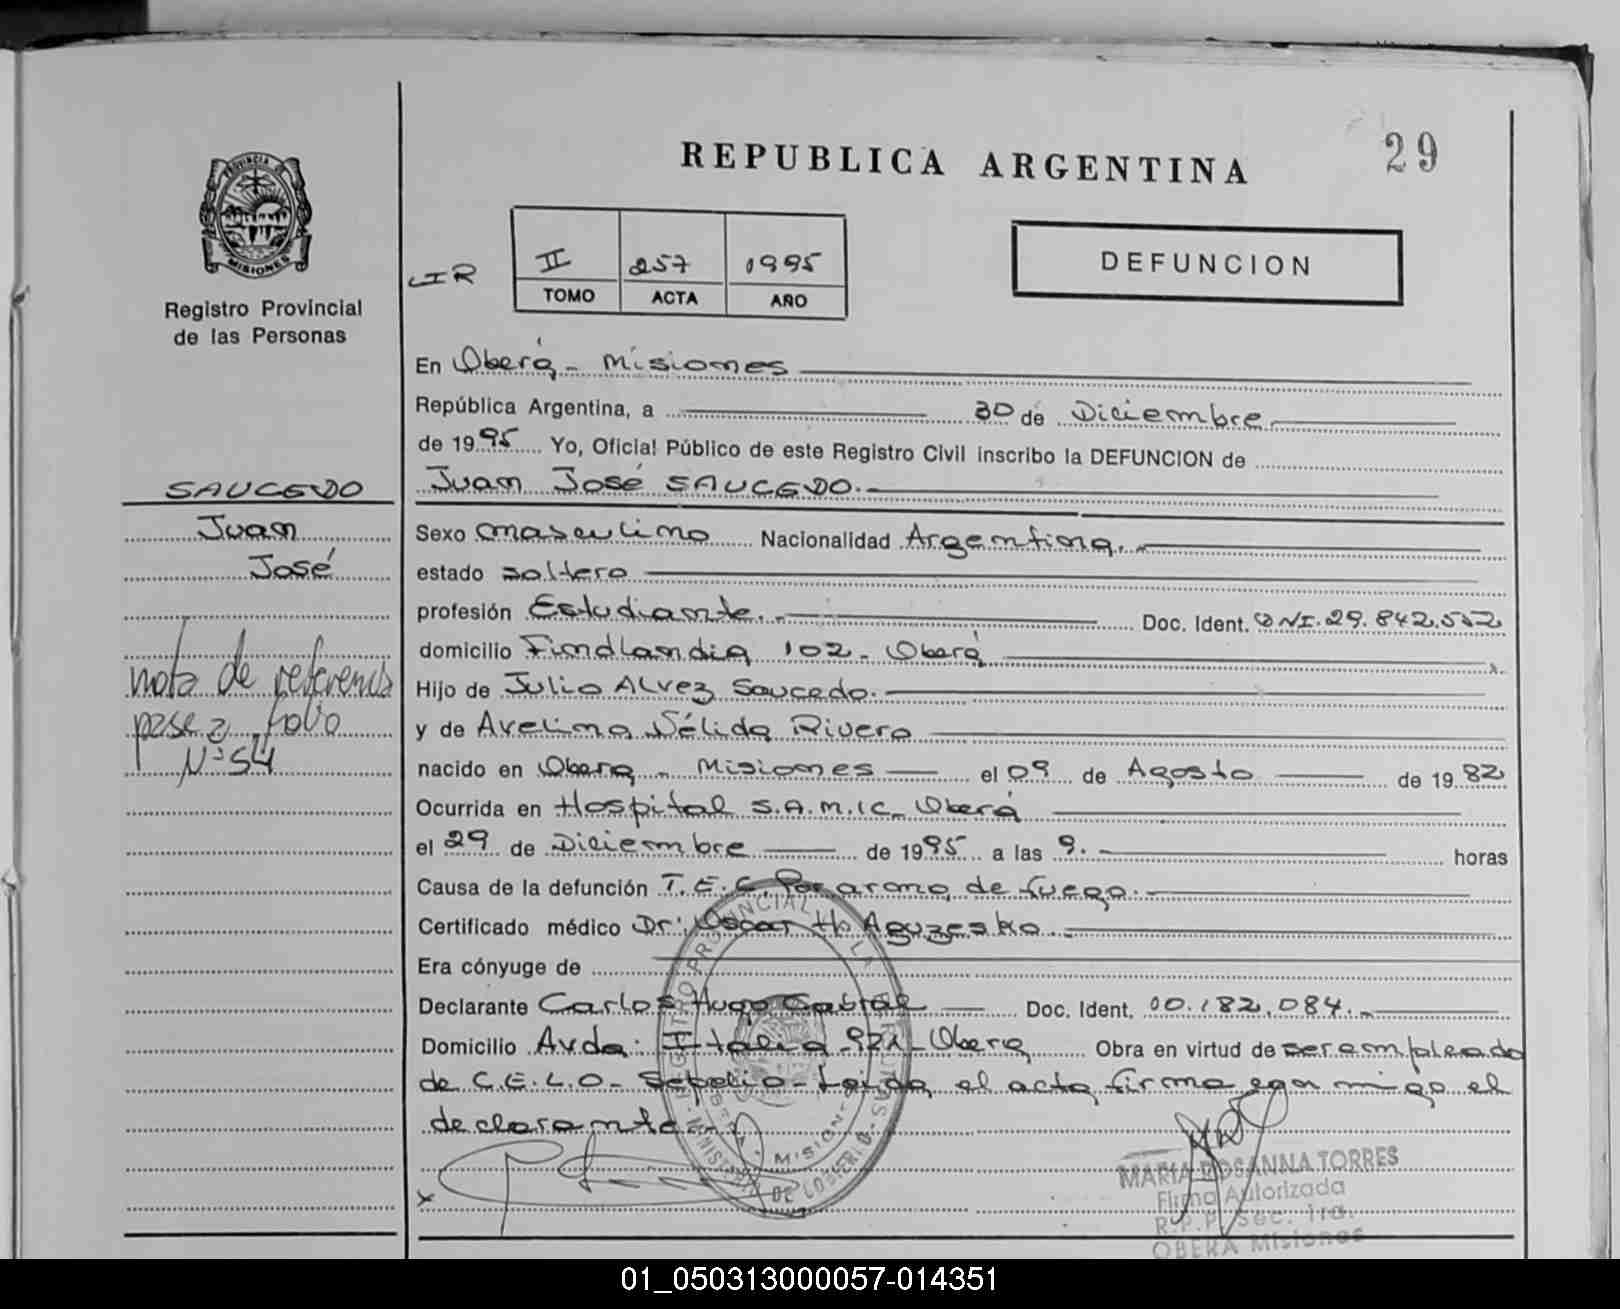 REPUBLICA ARGENTINA
29
PROVINCIA DE
MISIONES
Registro Provincial
de las Personas
II 257 1995
TOMO ACTA AÑO
DEFUNCION
En Oberá - Misiones
República Argentina, a 30 de Diciembre
de 1995 Yo, Oficial Público de este Registro Civil inscribo la DEFUNCION de
Juan José SAUCEDO.
SAUCEDO
Juan
José
nota de referencia
pase a folio
Nº 54
Sexo masculino Nacionalidad Argentina.
estado soltero
profesión Estudiante. Doc. Ident. DNI. 29.842.552
domicilio Findlandia 102 - Oberá
Hijo de Julio Alvez Saucedo.
y de Avelina Nélida Rivero
nacido en Oberá - Misiones el 09 de Agosto de 1982
Ocurrida en Hospital S.A.M.IC - Oberá
el 29 de Diciembre de 1995 a las 9. horas
Causa de la defunción T.E.C. Por arma de fuego.
Certificado médico Dr: Oscar H.
Era cónyuge de
Declarante Carlos Hugo Cabral Doc. Ident. 10.182.084.
Domicilio Avda: Italia 921 - Oberá Obra en virtud de ser empleado
de C.E.L.O - Sepelio - Leida el acta firma con migo el
declarante
REGISTRO PROVINCIAL DE LAS PERSONAS - MINISTERIO DE GOBIERNO
OBERA - MISIONES
MARIA ROSANNA TORRES
Firma Autorizada
R.P.P. Sec. 1ra.
OBERA Misiones
01_050313000057-014351